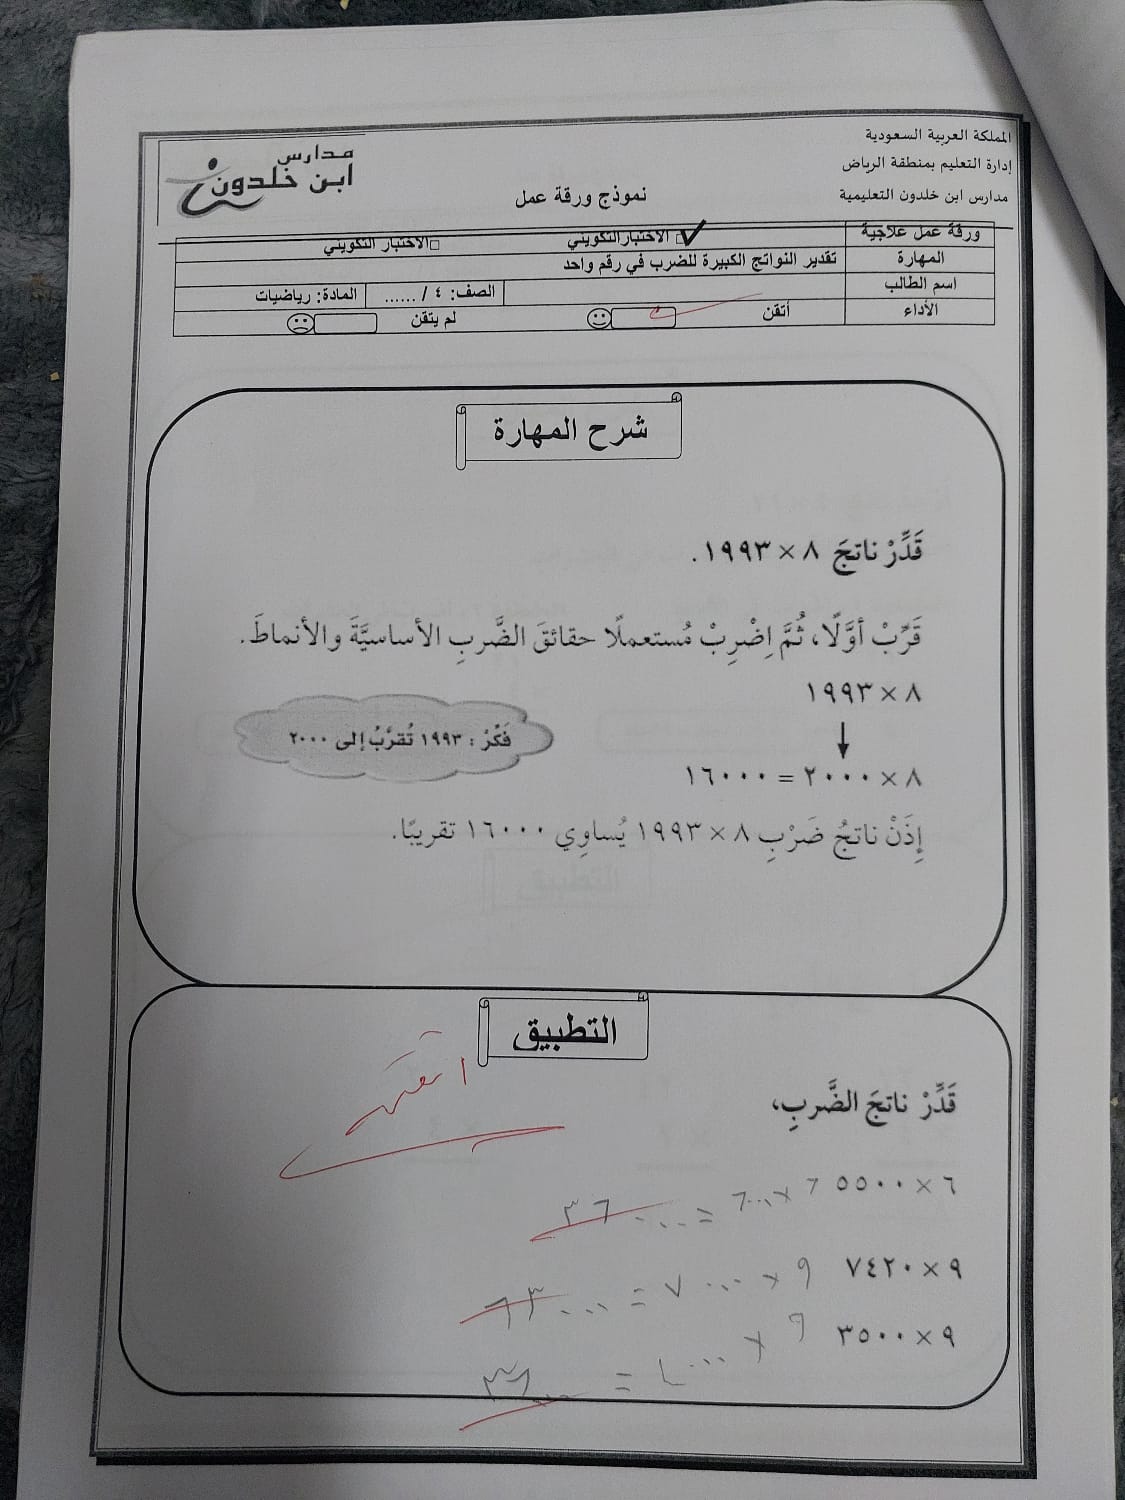 المملكة العربية السعودية
إدارة التعليم بمنطقة الرياض
مدارس ابن خلدون التعليمية
نموذج ورقة عمل
مدارس
ابن خلدون
ورقة عمل علاجية ☑ الاختبار التكويني □ الاختبار التكويني
المهارة تقدير النواتج الكبيرة للضرب في رقم واحد
اسم الطالب الصف: ٤ / ...... المادة: رياضيات
الأداء أتقن لم يتقن
شرح المهارة
قَدِّرْ ناتجَ ٨ × ١٩٩٣.
قَرِّبْ أوَّلًا، ثُمَّ اِضْرِبْ مُستعملًا حقائقَ الضَّربِ الأساسيَّةَ والأنماطَ.
٨ × ١٩٩٣
فَكِّرْ : ١٩٩٣ تُقرَّبُ إلى ٢٠٠٠
٨ × ٢٠٠٠ = ١٦٠٠٠
إِذَنْ ناتجُ ضَرْبِ ٨ × ١٩٩٣ يُساوِي ١٦٠٠٠ تقريبًا.
التطبيق
أتقن
قَدِّرْ ناتجَ الضَّربِ،
٦ × ٥٥٠٠ ٦ × ٦٠٠٠ = ٣٦٠٠٠
٩ × ٧٤٢٠ ٩ × ٧٠٠٠ = ٦٣٠٠٠
٩ × ٣٥٠٠ ٩ ×